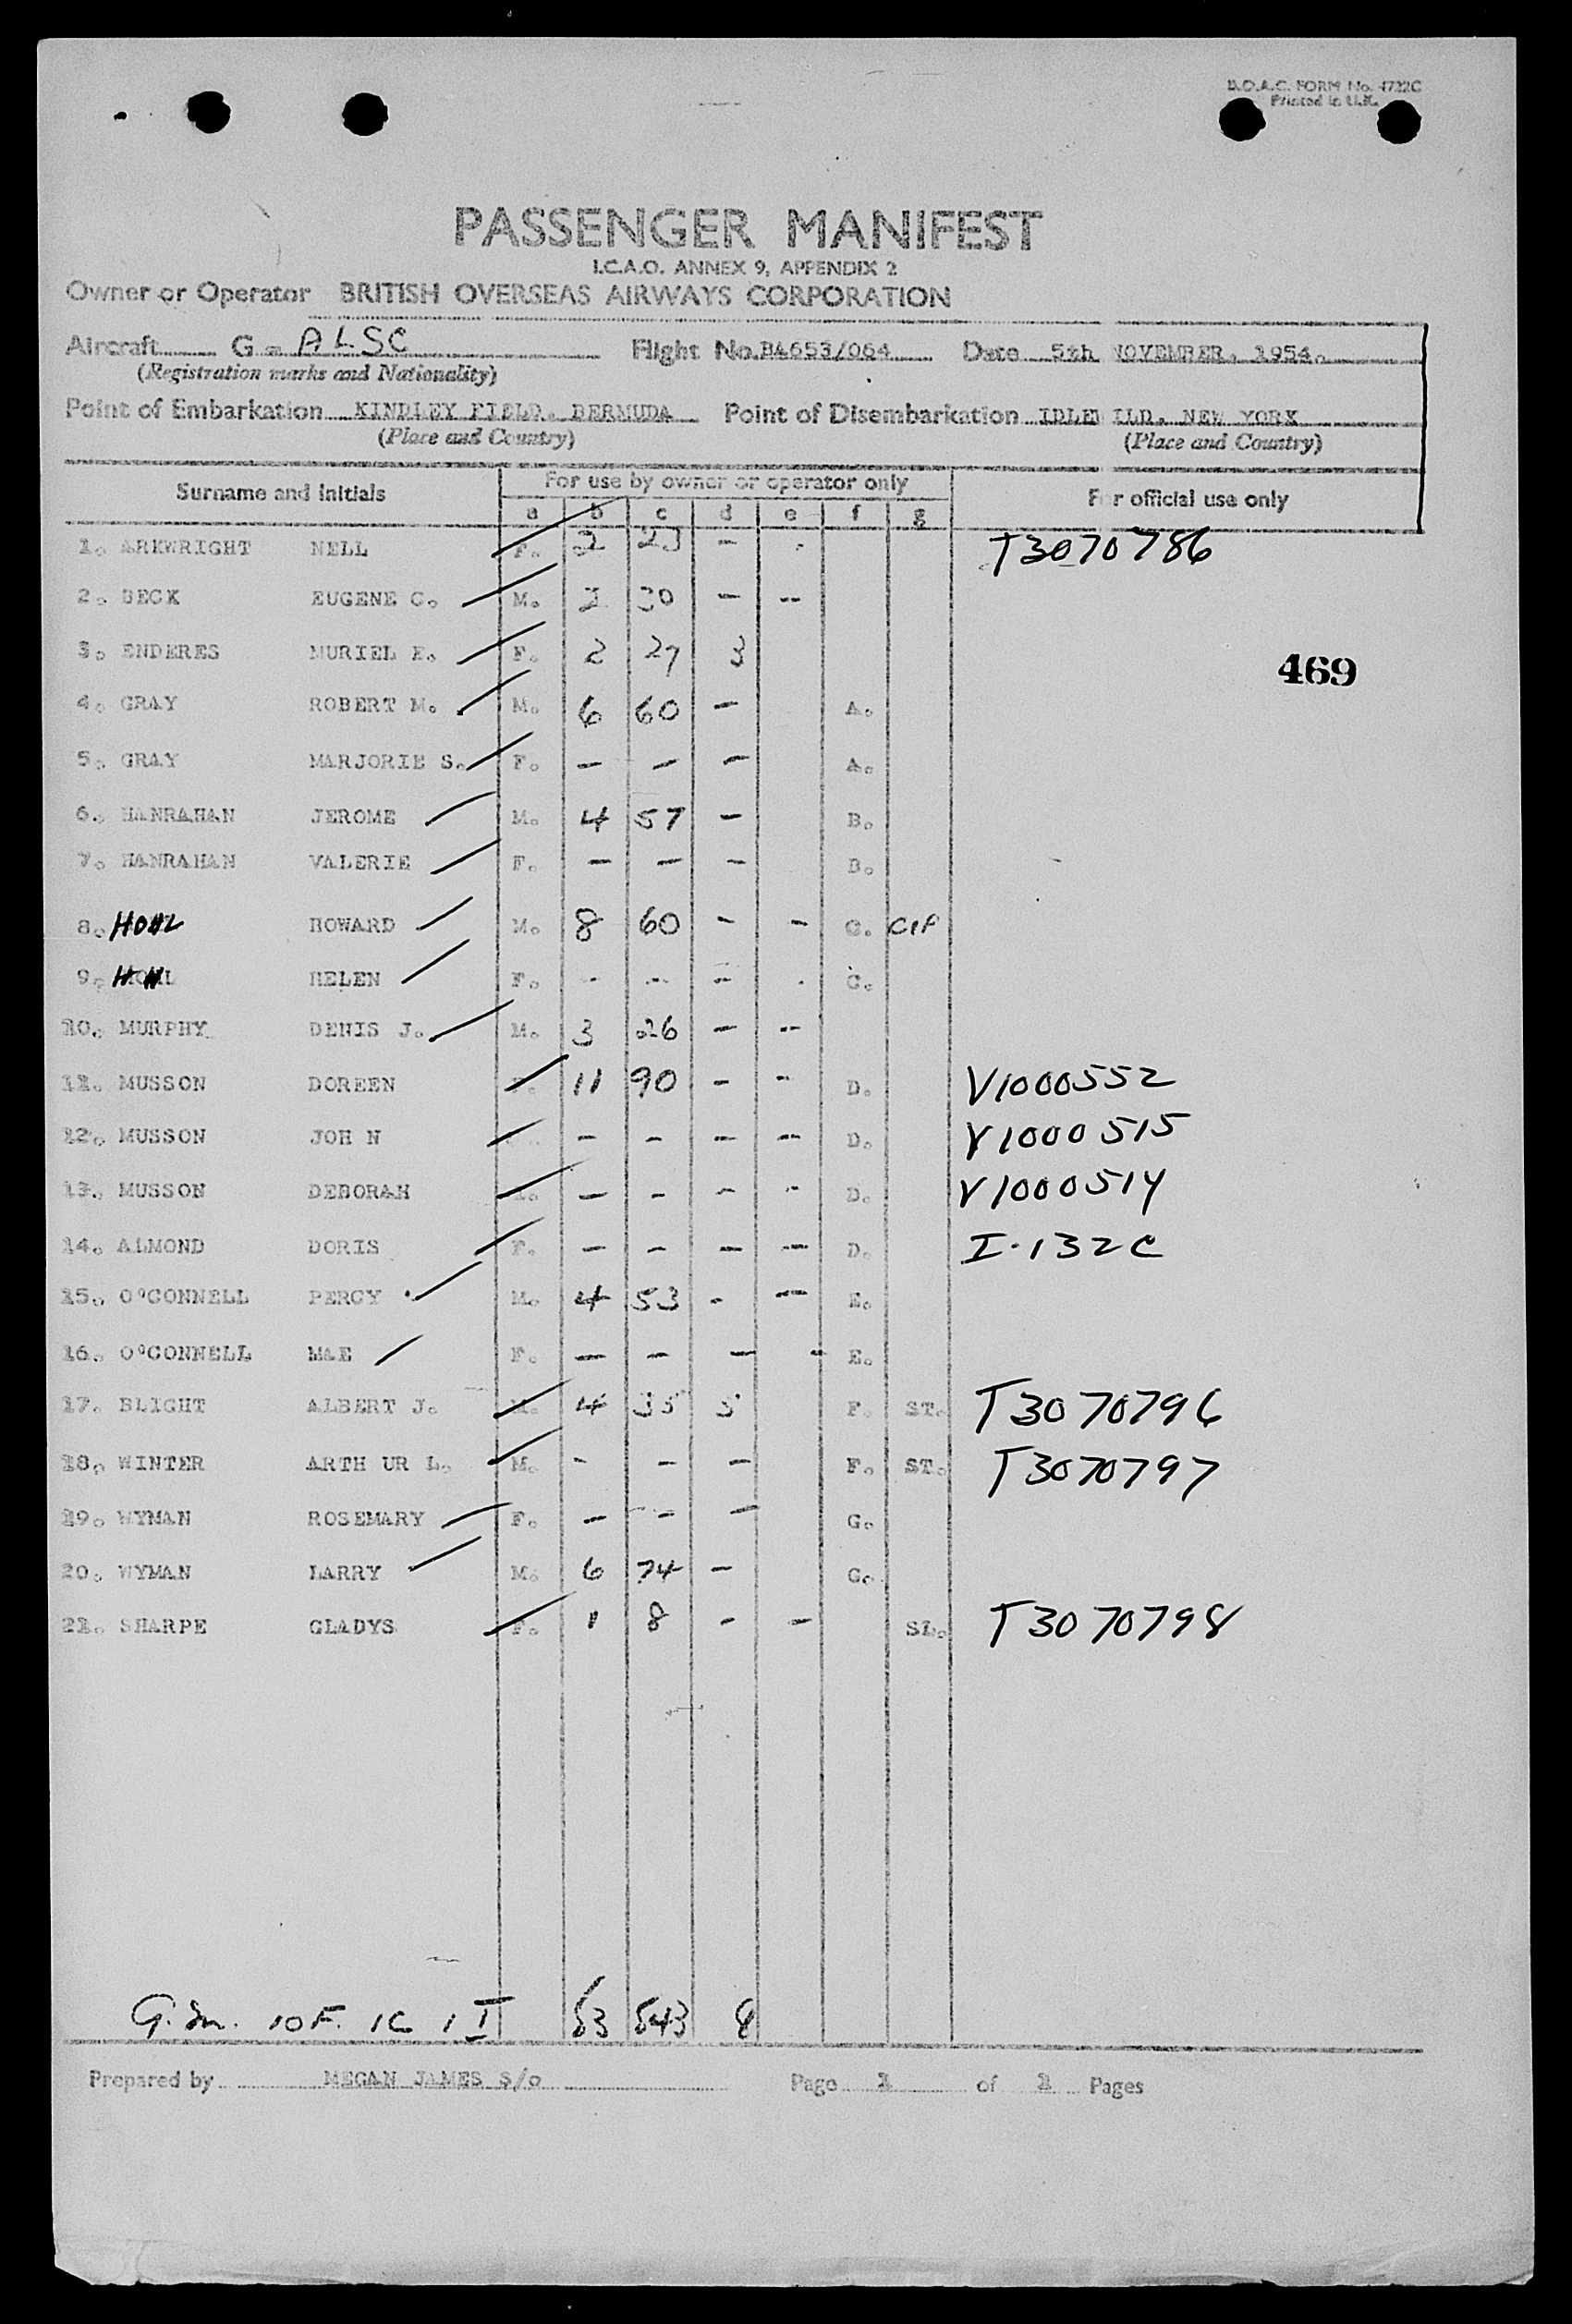 B.O.A.C. FORM No. 4722C
Printed in U.K.
PASSENGER MANIFEST
I.C.A.O. ANNEX 9, APPENDIX 2
Owner or Operator BRITISH OVERSEAS AIRWAYS CORPORATION
Aircraft G - ALSC Flight No. BA653/064 Date 5th NOVEMBER, 1954.
(Registration marks and Nationality)
Point of Embarkation KINDLEY FIELD, BERMUDA Point of Disembarkation IDLEWILD, NEW YORK
(Place and Country) (Place and Country)
Surname and initials For use by owner or operator only For official use only
a b c d e f g
1. ARKWRIGHT NELL F. 2 23 - T3070786
2. BECK EUGENE C. M. 2 30 - --
3. ENDERES MURIEL E. F. 2 27 3
469
4. GRAY ROBERT M. M. 6 60 - A.
5. GRAY MARJORIE S. F. - - - A.
6. HANRAHAN JEROME M. 4 57 - B.
7. HANRAHAN VALERIE F. - - - B.
8. HOWARD M. 8 60 - - C. CIP
9. HELEN F. - - - C.
10. MURPHY DENIS J. M. 3 26 - --
11. MUSSON DOREEN F. 11 90 - - D. V1000552
12. MUSSON JOH N - - - - D. V1000515
13. MUSSON DEBORAH - - - - D. V1000514
14. ALMOND DORIS F. - - - - D. I-132C
15. O'CONNELL PERCY M. 4 53 - - E.
16. O'CONNELL MAE F. - - - - E.
17. BLIGHT ALBERT J. M. 4 35 5 F. ST. T3070796
18. WINTER ARTH UR L. M. - - - F. ST. T3070797
19. WYMAN ROSEMARY F. - - - G.
20. WYMAN LARRY M. 6 74 - G.
21. SHARPE GLADYS F. 1 8 - - SL. T3070798
10F. 1C 1I 53 543 8
Prepared by MEGAN JAMES S/o Page 1 of 1 Pages